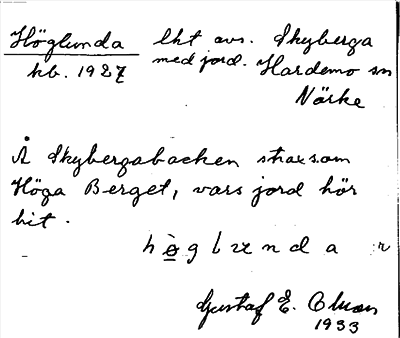 Höglunda lht avs. Skyberga
kb. 1927 med jord. Hardemo sn
Närke
Å Skybergabacken strax som
Höga Berget, vars jord hör
hit.
h ò̲ g l u n d a r
Gustaf E. Olsson
1933